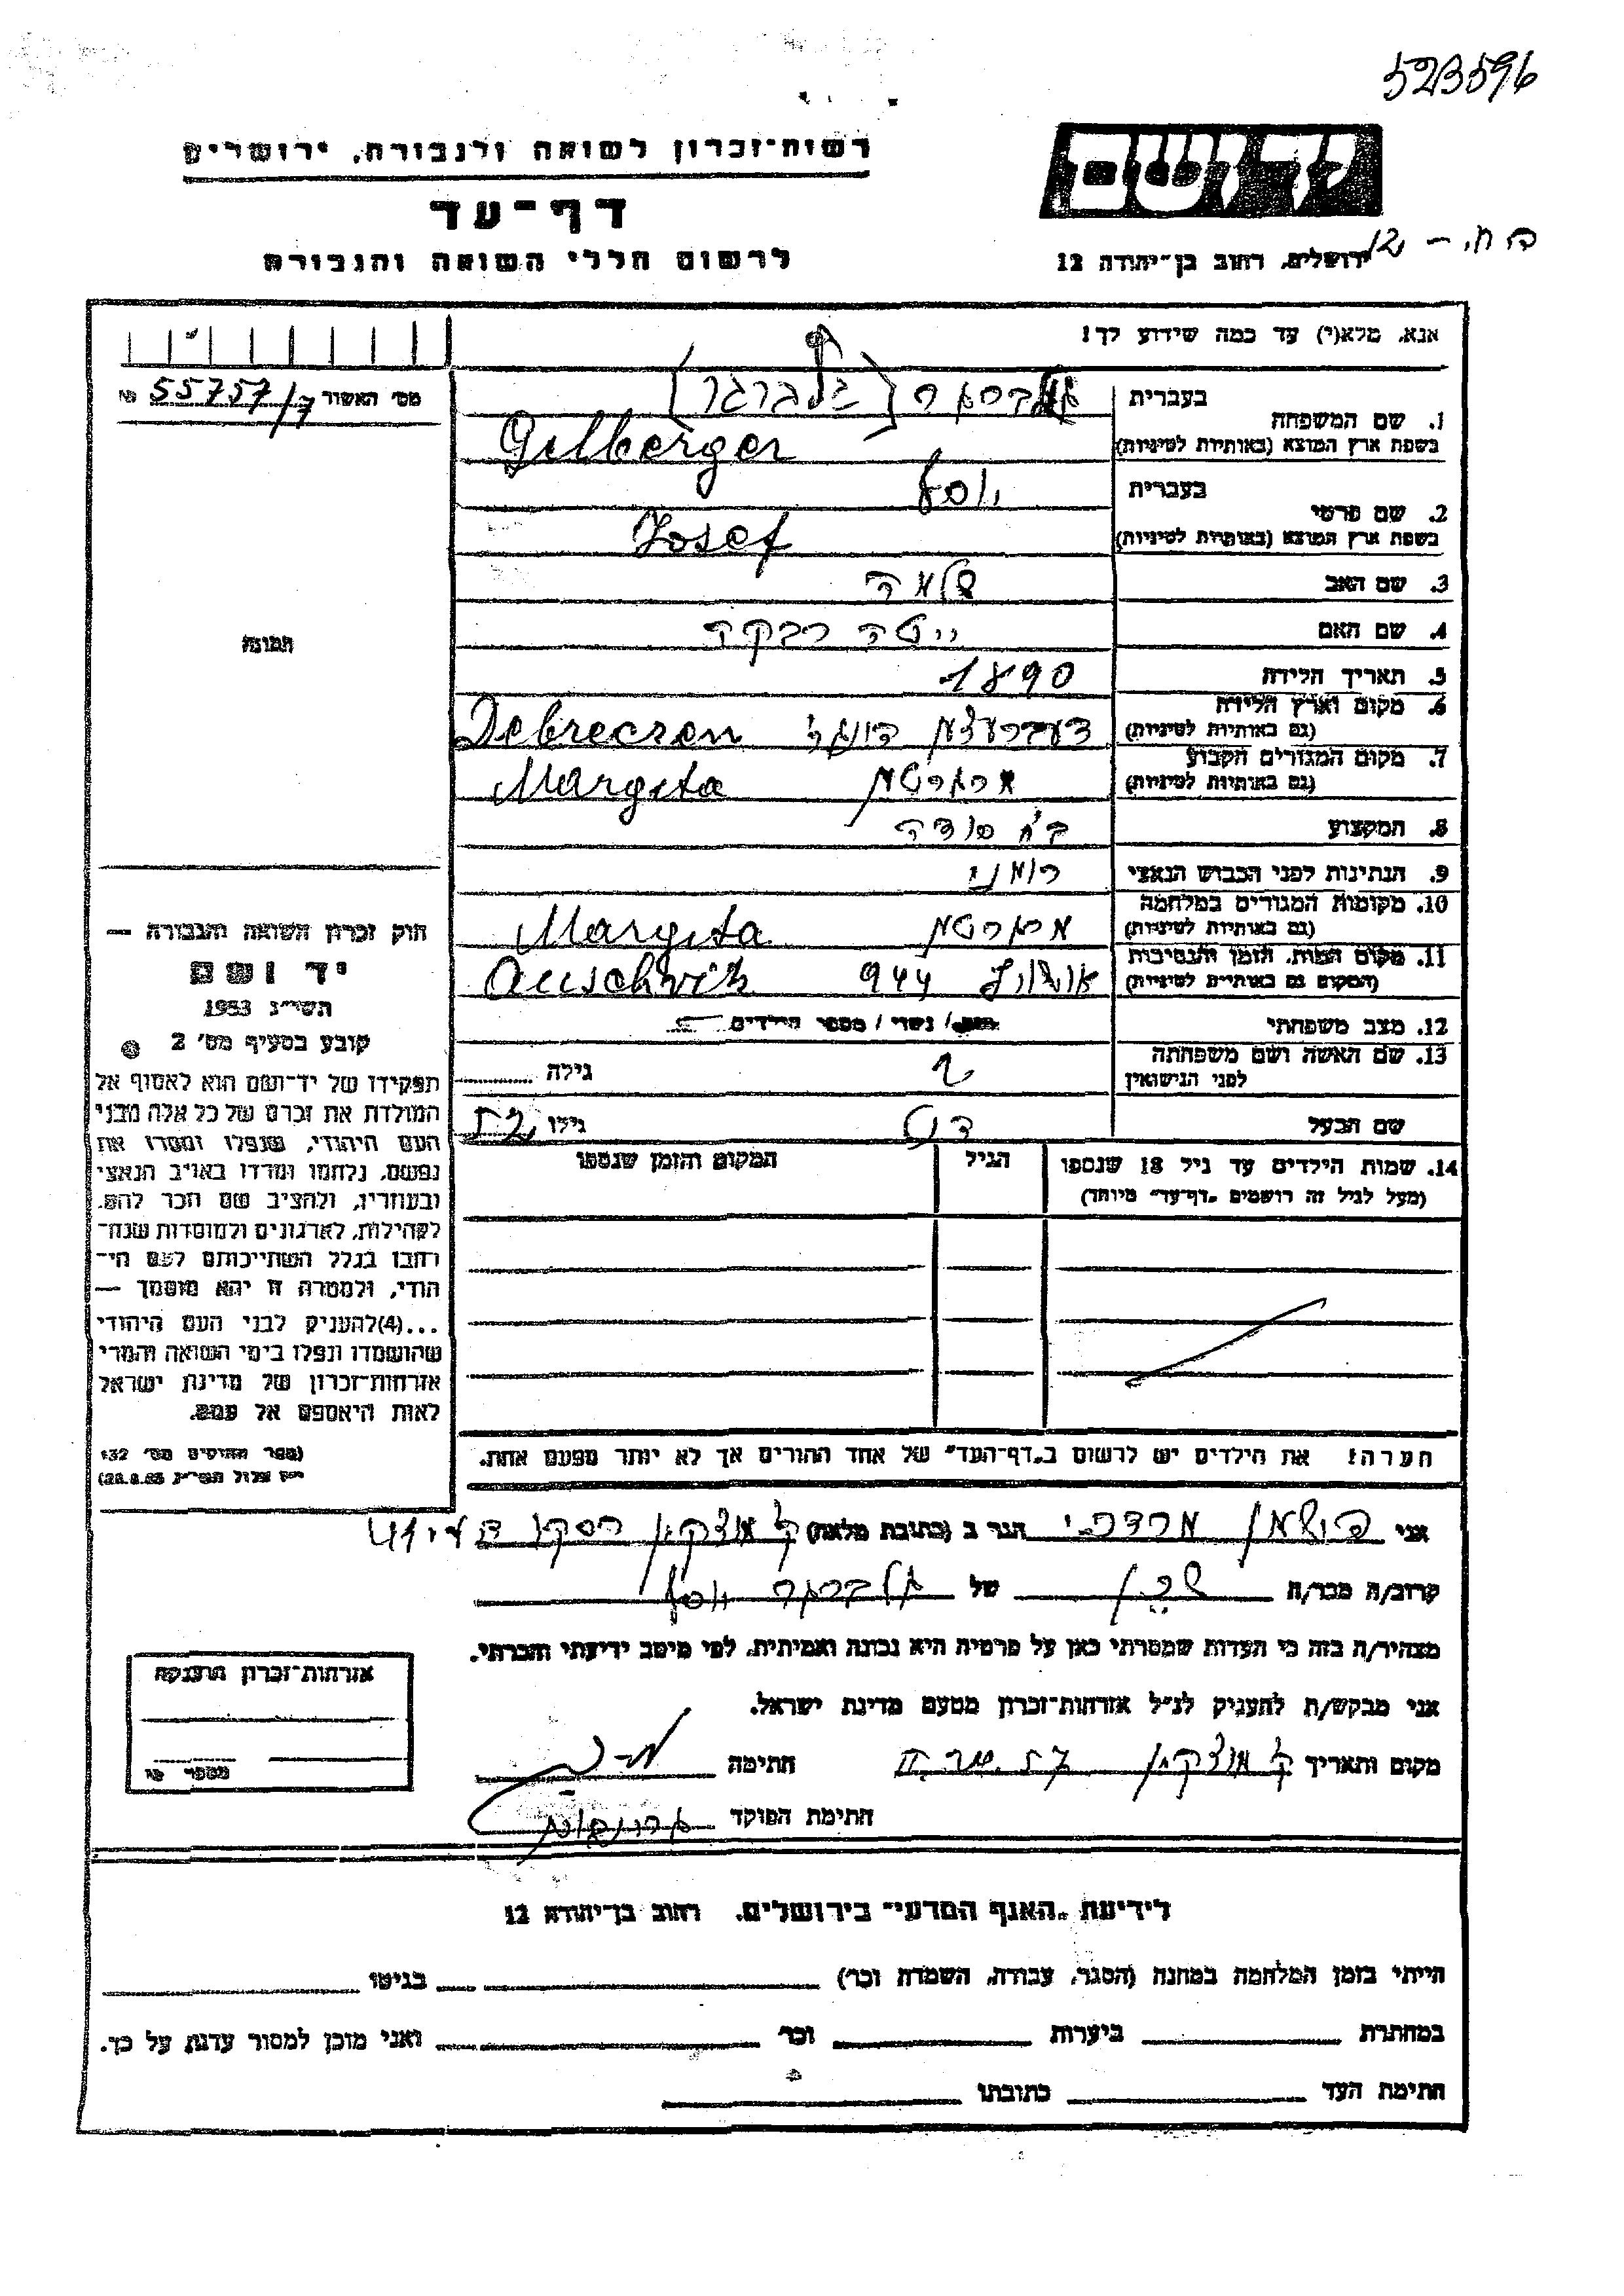 523596
רשות־זכרון לשואה ולגבורה, ירושלים
יד ושם
דף־עד
לרשום חללי השואה והגבורה
ירושלים, רחוב בן־יהודה 12
אנא, מלא(י) עד כמה שידוע לך!
מס׳ האשור 55757/7 №
1. שם המשפחה
בעברית (גלברגר)
בשפת ארץ המוצא (באותיות לטיניות) Gelberger
2. שם פרטי
בעברית יוסף
בשפת ארץ המוצא (באותיות לטיניות) Josef
3. שם האב שלמה
4. שם האם ייטה רבקה
5. תאריך הלידה 1890
6. מקום וארץ הלידה Debreczen
(גם באותיות לטיניות)
7. מקום המגורים הקבוע Margita
(גם באותיות לטיניות)
8. המקצוע
9. הנתינות לפני הכבוש הנאצי רומני
10. מקומות המגורים במלחמה Margita
(גם באותיות לטיניות)
11. מקום המות, הזמן והנסיבות 944 Auschwitz
(המקום גם באותיות לטיניות)
12. מצב משפחתי נשוי / מספר הילדים
13. שם האשה ושם משפחתה
לפני הנישואין גילה
שם הבעל גילו
14. שמות הילדים עד גיל 18 שנספו
(מעל לגיל זה רושמים „דף־עד״ מיוחד)
הגיל
המקום והזמן שנספו
הערה! את הילדים יש לרשום ב„דף־העד״ של אחד ההורים אך לא יותר מפעם אחת.
תמונה
חוק זכרון השואה והגבורה —
יד ושם
תשי״ג 1953
קובע בסעיף מס׳ 2
תפקידו של יד־ושם הוא לאסוף אל
המולדת את זכרם של כל אלה מבני
העם היהודי, שנפלו ומסרו את
נפשם, נלחמו ומרדו באויב הנאצי
ובעוזריו, ולהציב שם וזכר להם,
לקהילות, לארגונים ולמוסדות שנח־
רבו בגלל השתייכותם לעם הי־
הודי, ולמטרה זו יהא מוסמך —
...(4)להעניק לבני העם היהודי
שהושמדו ונפלו בימי השואה והמרי
אזרחות־זכרון של מדינת ישראל
לאות היאספם אל עמם.
(ספר החוקים מס׳ 132
י״ז אלול תשי״ג 28.8.53)
אני מרדכי הגר ב (כתובת מלאה) ק מוצקין
קרוב/ה מכר/ה שכן של גלברגר יוסף
מצהיר/ה בזה כי העדות שמסרתי כאן על פרטיה היא נכונה ואמיתית, לפי מיטב ידיעתי והכרתי.
אני מבקש/ת להעניק לנ״ל אזרחות־זכרון מטעם מדינת ישראל.
מקום ותאריך ק מוצקין חתימה
חתימת הפוקד
אזרחות־זכרון הוענקה
מספר
לידיעת „האגף המדעי״ בירושלים, רחוב בן־יהודה 12
הייתי בזמן המלחמה במחנה (הסגר, עבודה, השמדה וכו׳) בגיטו
במחתרת ביערות וכו׳ ואני מוכן למסור עדות על כך.
חתימת העד כתובתו